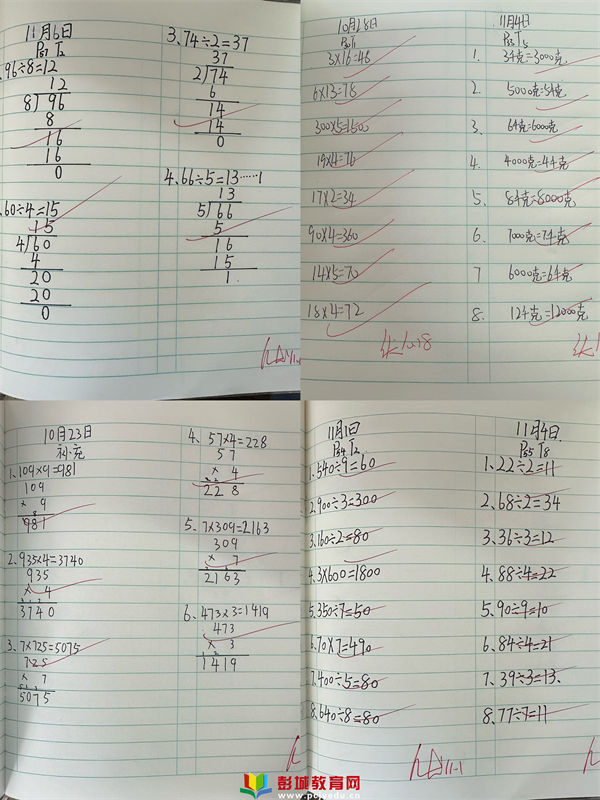 11月6日
P51 T2
96÷8=12
12
8)96
8
16
16
0
.60÷4=15
15
4)60
4
20
20
0
3.74÷2=37
37
2)74
6
14
14
0
4.66÷5=13……1
13
5)66
5
16
15
1
10月28日
3×16=48
6×13=78
300×5=1500
19×4=76
17×2=34
90×4=360
14×5=70
18×4=72
11月4日
P55 T5
1. 3千克=3000克
2. 5000克=5千克
3. 6千克=6000克
4. 4000克=4千克
5. 8千克=8000克
6. 7000克=7千克
7 6000克=6千克
8. 12千克=12000克
10月23日
补充
1.109×9=981
109
× 9
981
2.935×4=3740
935
× 4
3740
3.7×725=5075
725
× 7
5075
4、57×4=228
57
× 4
228
5、7×309=2163
309
× 7
2163
6、473×3=1419
473
× 3
1419
11月1日
P54 T2
1.540÷9=60
2.900÷3=300
3.160÷2=80
4.3×600=1800
5.350÷7=50
6.70×7=490
7.400÷5=80
8.640÷8=80
11月4日
P55 T8
1.22÷2=11
2.68÷2=34
3.36÷3=12
4.88÷4=22
5.90÷9=10
6.84÷4=21
7.39÷3=13.
8.77÷7=11
彭城教育网
www.pcjyedu.cn